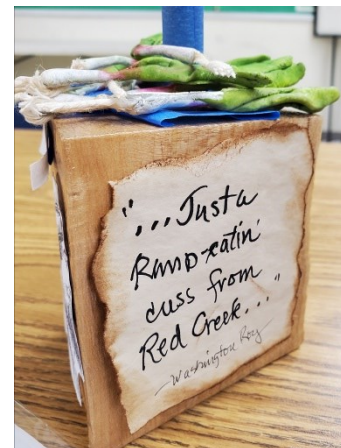 "...Just a
Ramp-eatin'
cuss from
Red Creek..."
-Washington Roy